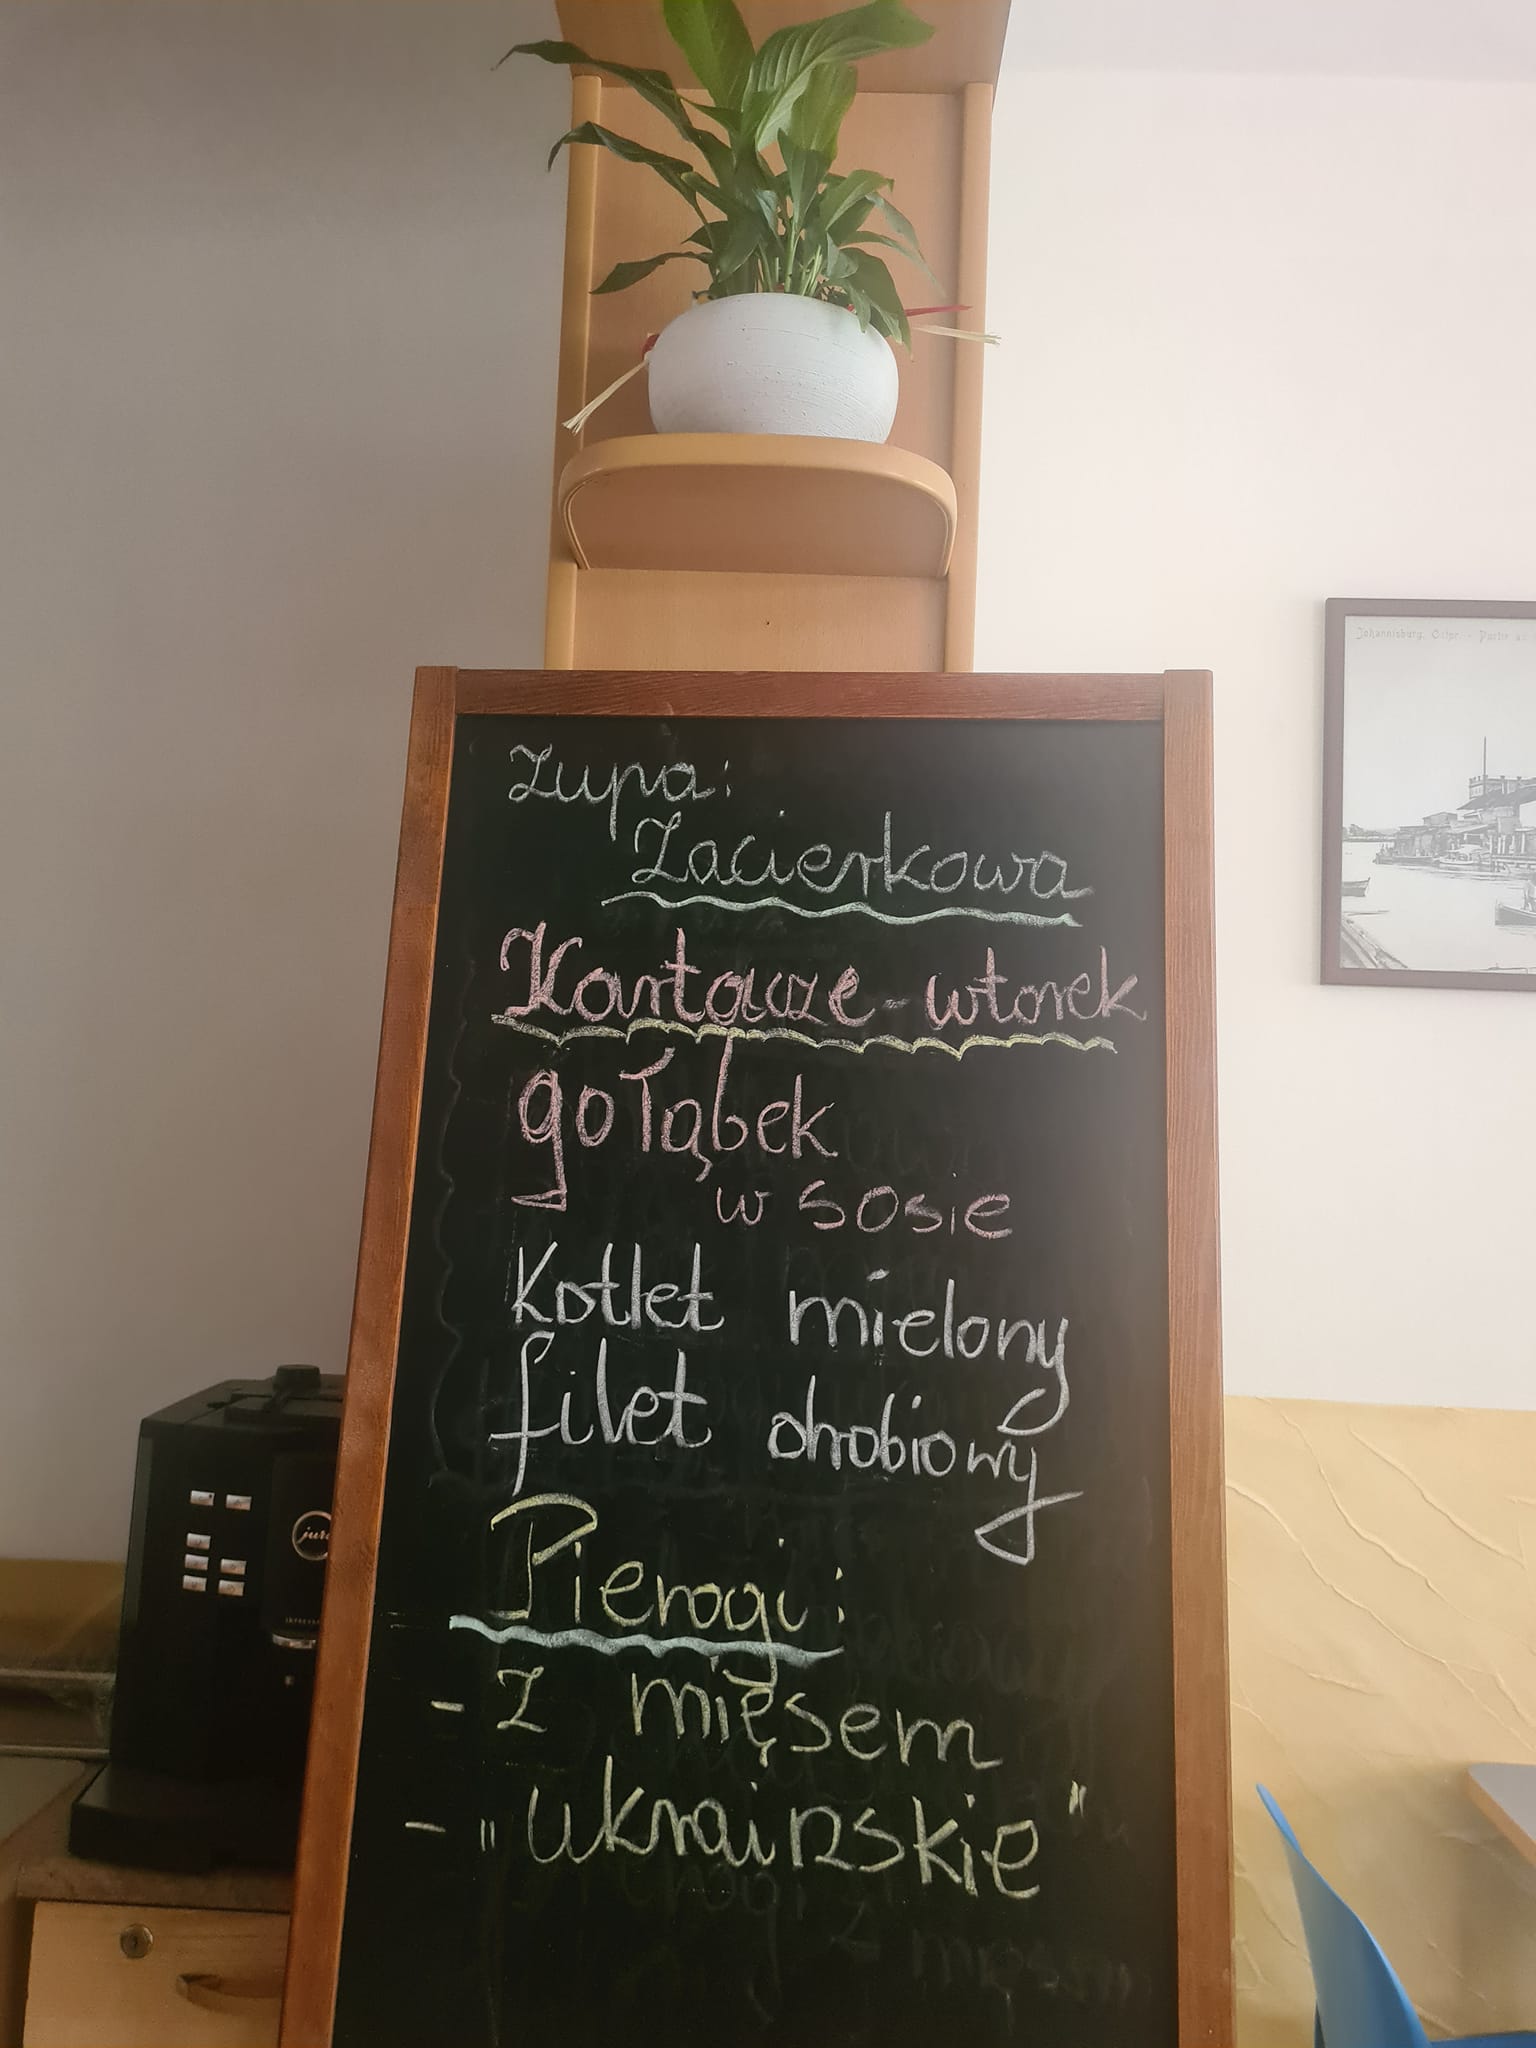 Zupa:
Zacierkowa
Kartacze - wtorek
gołąbek
w sosie
Kotlet mielony
filet drobiowy
Pierogi:
- z mięsem
- "Ukraińskie"
Johannisburg, Ostpr. - Partie a
jura